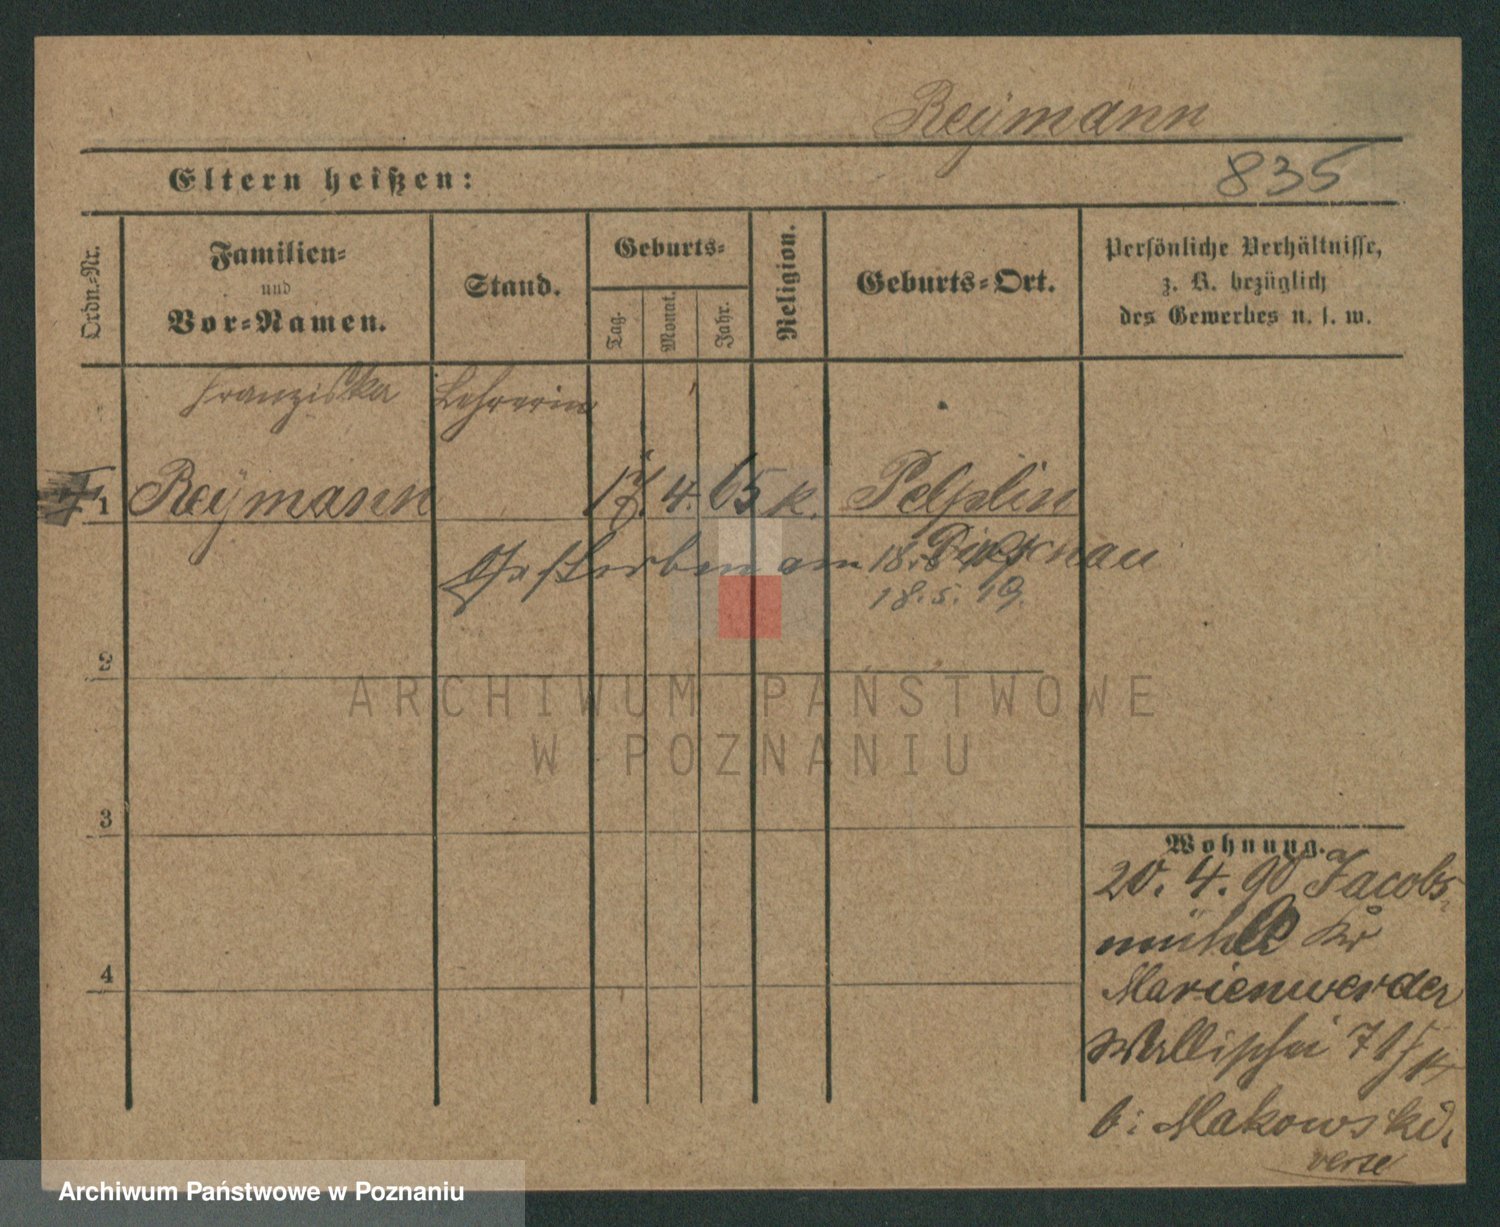 Reymann
835
Eltern heißen:
Ordn.-Nr.
Familien-
und
Vor-Namen.
Stand.
Geburts-
Tag.
Monat.
Jahr.
Religion.
Geburts-Ort.
Persönliche Verhältnisse,
z. B. bezüglich
des Gewerbes u. s. w.
Franziska Lehrerin
1 Reymann 17. 4. 65 k. Pelplin
Dirschau
Gestorben am 18.5.19
18.5.19.
2
ARCHIWUM PAŃSTWOWE
W POZNANIU
3
4
Wohnung.
20. 4. 90 Jacobs-
mühle Kr
Marienwerder
Wallischei 71
b: Makowski.
verte
Archiwum Państwowe w Poznaniu